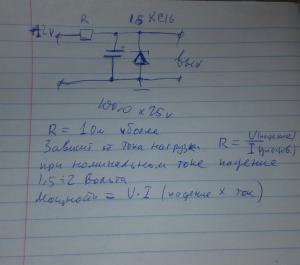 R 1,5 КС16
12V
+
Вых
1000,0 x 25v
R = 1 Ом и более
Зависит от тока нагрузки R = U(падение)/I
при номинальном токе падение
1,5 ÷ 2 Вольта
Мощность = V · I (падение x ток)